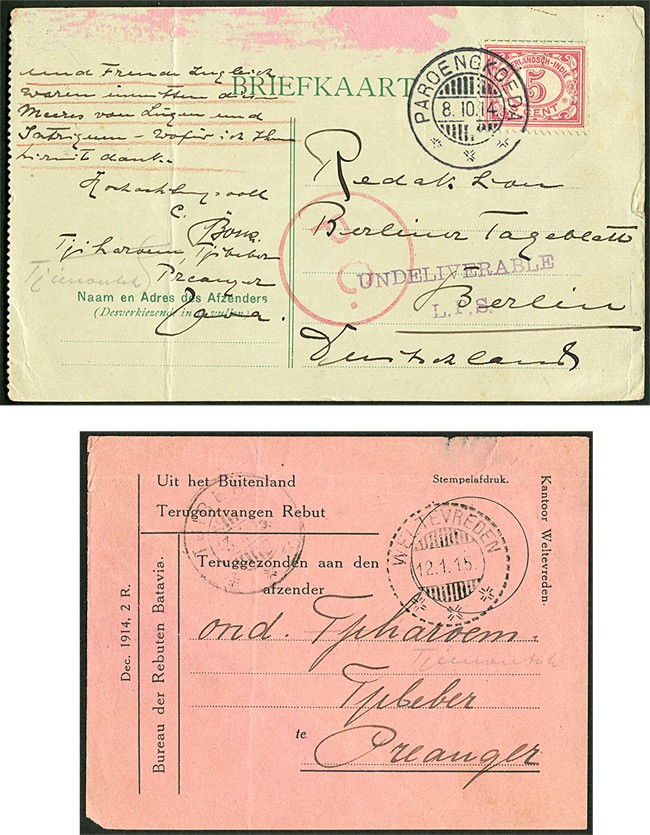 und Freude zugleich
BRIEFKAART
waren inmitten des
Meeres von Lügen und
Intriguen – wofür ich Ihnen
hiermit danke.
Hochachtungsvoll
C.
Tjiharoem, Tjibeber
Preanger
Java.
Naam en Adres des Afzenders
(Desverkiezende in te vullen)
NEDERLANDSCH-INDIE
5
CENT
PAROENGKOEDA
8.10.14
Redaktion
Berliner Tageblatt
UNDELIVERABLE
L.P.S.
Berlin
Deutschland
P.C.
Uit het Buitenland
Terugontvangen Rebut
Stempelafdruk.
Kantoor Weltevreden.
WELTEVREDEN
12.1.15.
Teruggezonden aan den
afzender
Dec. 1914, 2 R.
Bureau der Rebuten Batavia.
ond. Tjiharoem.
Tjibeber
te
Preanger